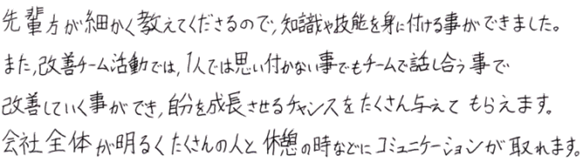 先輩方が細かく教えてくださるので,知識や技能を身に付ける事ができました。
また,改善チーム活動では,1人では思い付かない事でもチームで話し合う事で
改善していく事ができ,自分を成長させるチャンスをたくさん与えてもらえます。
会社全体が明るくたくさんの人と休憩の時などにコミュニケーションが取れます。